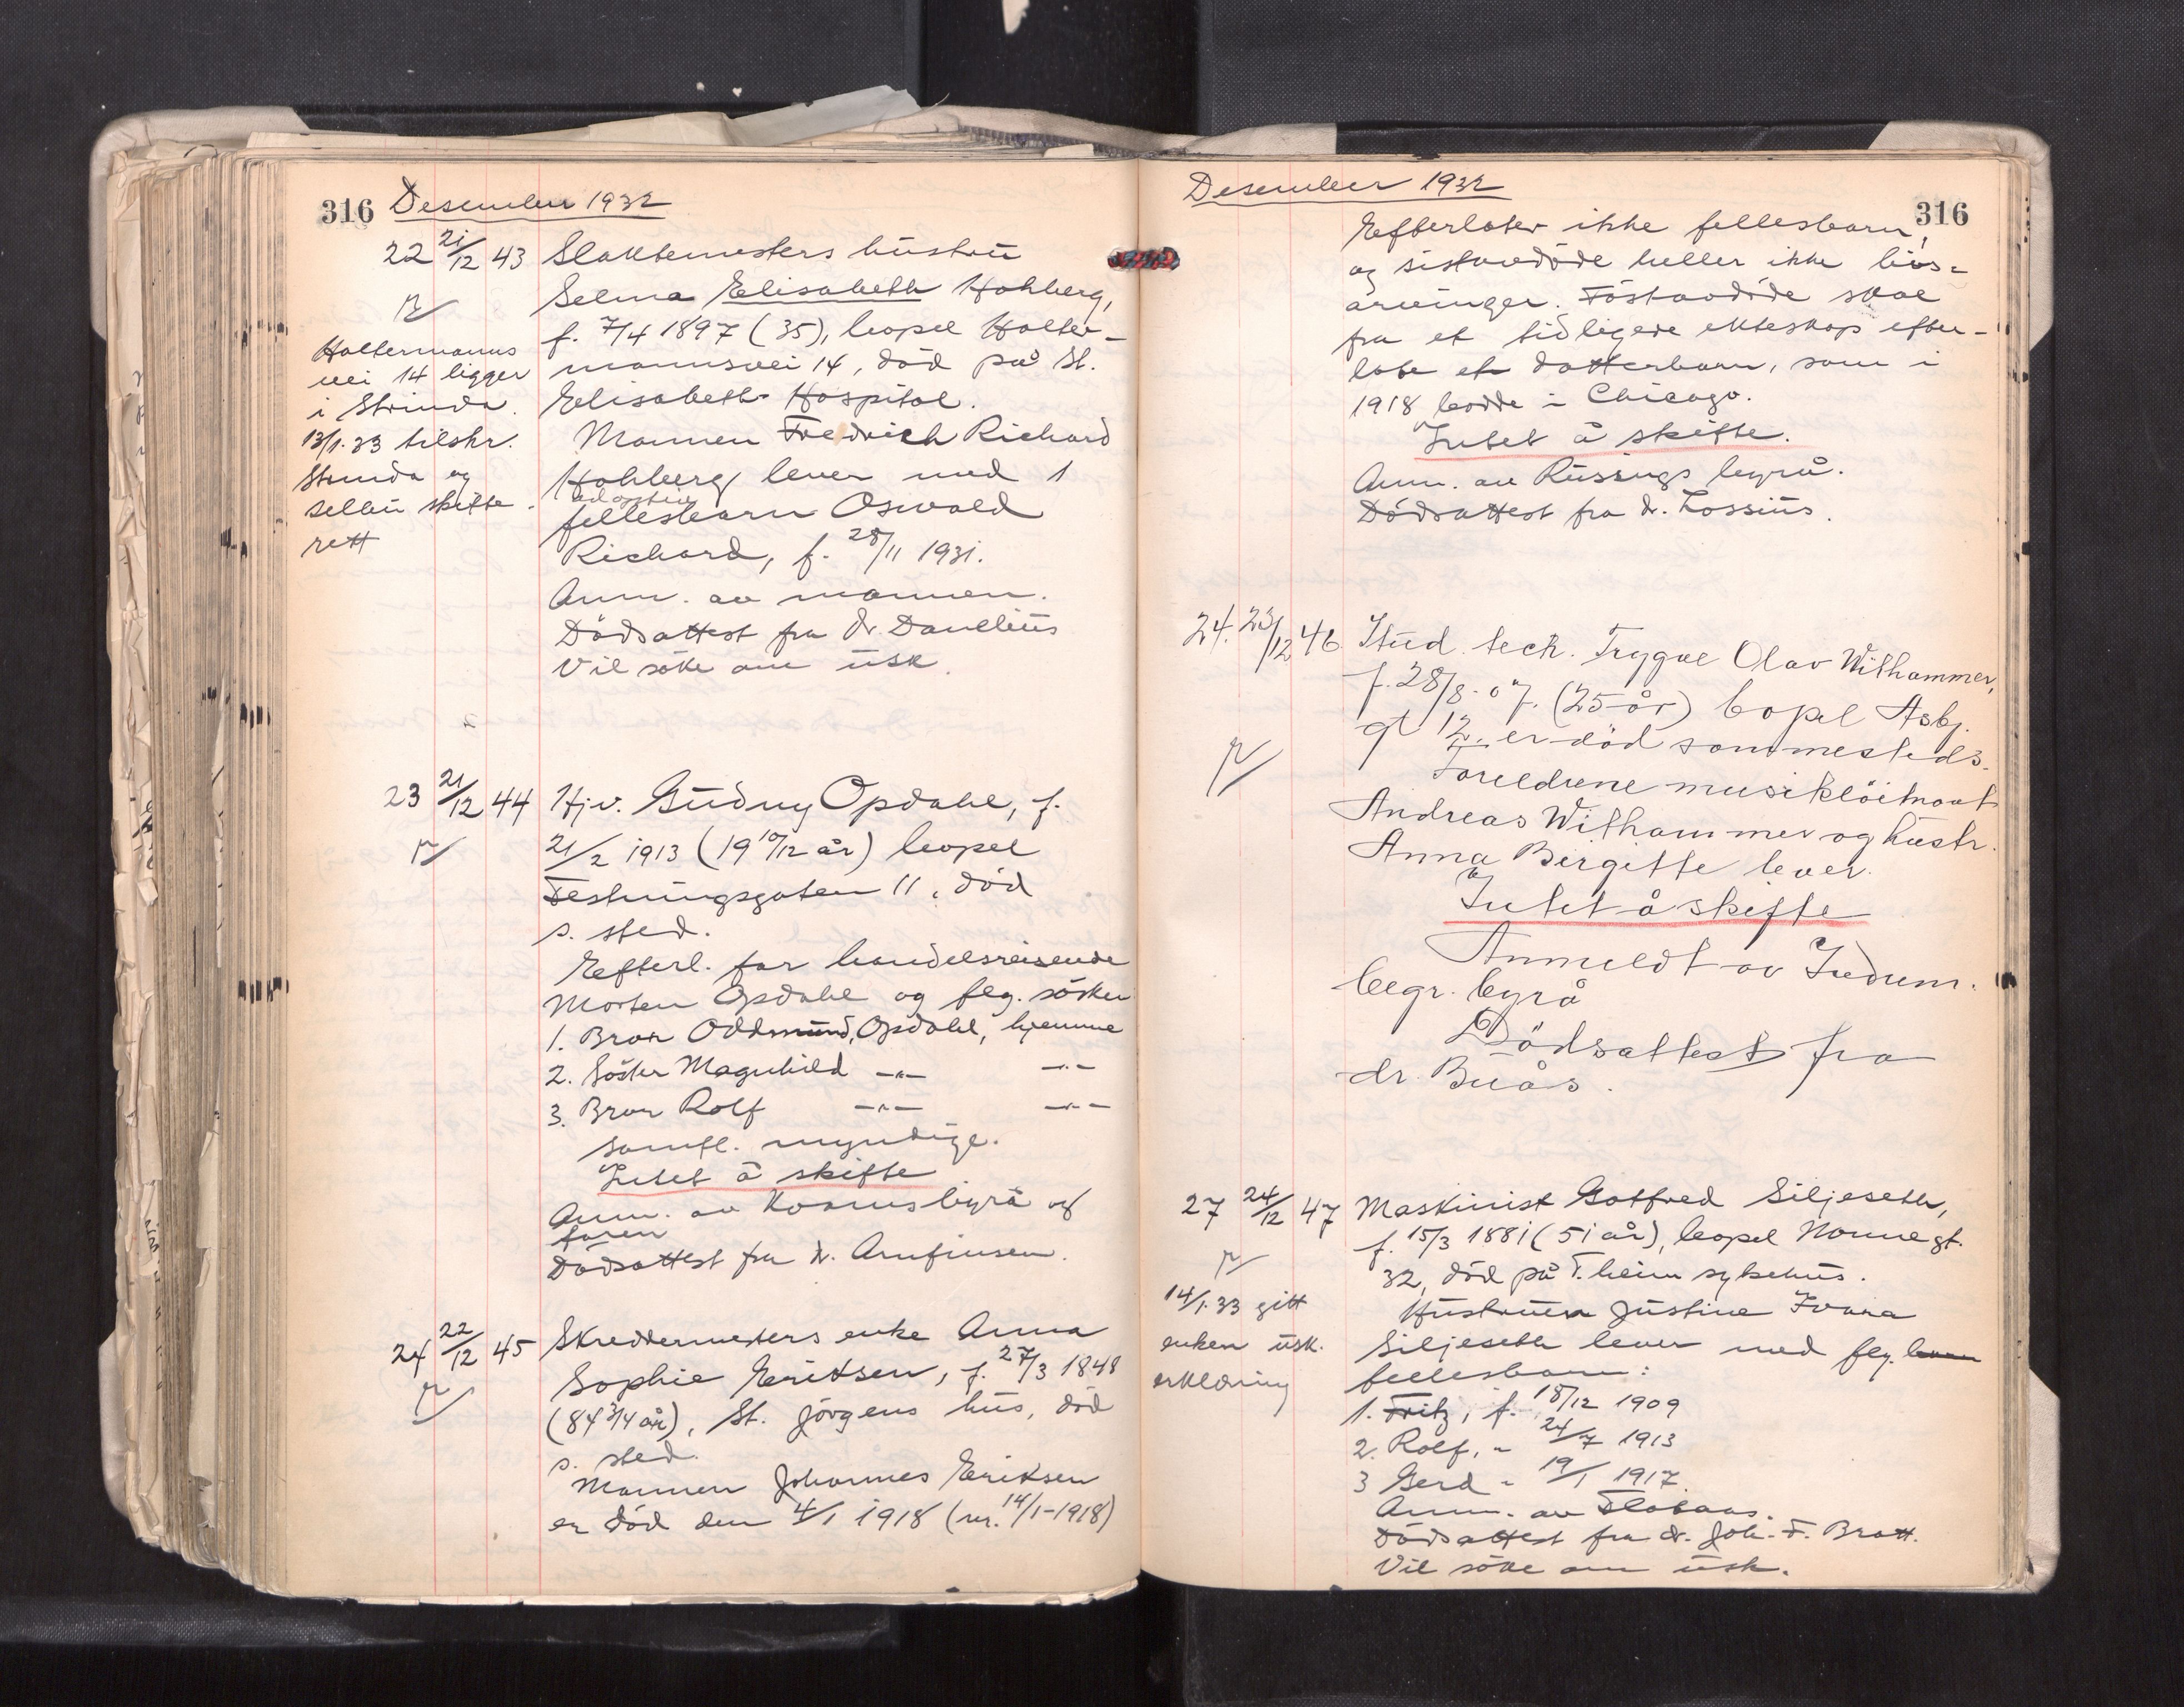 316 Desember 1932
22 21/12 43 Slaktemesters hüstrü
Selma Elisabeth Hohberg,
f. 7/4 1897 (35), bopel Halter-
mannsvei 14, död på St.
Elisabeth Hospital.
Mannen Fredrich Richard
Hohberg lever med 1
adoptiv
fellesbarn Oswald
Richard, f. 28/11 1931.
Anm. av mannen.
Dödsattest fra dr. Daneliüs
Vil söke om üsk.
Haltermanns
vei 14 ligger
i Strinda.
13/1.33 tilskr.
Strinda og
Selbü skifte-
rett
23 21/12 44 Hjv. Güdny Opdahl, f.
21/2 1913 (19 10/12 år) bopel
Festningsgaten 11, död
s. sted.
Efterl. far handelsreisende
Morten Opdahl og flg. sösken
1. Bror Oddmünd Opdahl, hjemme
2. Söster Magnhild -"- -"-
3. Bror Rolf -"- -"-
samtl. myndige.
Intet å skifte
Anm. av byrå og
faren
Dödsattest fra dr. Arnfinsen.
24 22/12 45 Skreddermesters enke Anna
Sophie Eriksen, f. 27/3 1848
(84 3/4 år), St. Jörgens hüs, död
s. sted.
Mannen Johannes Eriksen
er död den 4/1 1918 (nr. 14/1-1918)
Desember 1932
316
Efterlater ikke fellesbarn,
og sistavdöde heller ikke livs-
arvinger. Föstavdöde skal
fra et tidligere ekteskap efter-
late et datterbarn, som i
1918 bodde i Chicago.
Intet å skifte.
Anm. av Rüsings byrå.
Dödsattest fra dr. Lossiüs.
24. 23/12 46 Stud. tech. Trygve Olav Withammer,
f. 28/8-07. (25 år) bopel Asbj.
gt 12. er död sammesteds.
Foreldrene musiklöitnant
Andreas Withammer og hüstr.
Anna Birgitte lever.
Intet å skifte
Anmeldt av Indum.
begr. byrå
Dödsattest fra
dr. Buås.
27 24/12 47 Maskinist Gotfred Siljeseth,
f. 15/3 1881 (51 år), bopel Nonnegt.
32, död på T.heim sykehüs.
Hüstrüen Jüstine Ivara
Siljeseth lever med flg. barn
fellesbarn:
1. Fritz, f. 18/12 1909
2. Rolf, " 24/7 1913
3 Gerd " 19/1 1917.
Anm. av Flataas.
Dödsattest fra dr. Joh. F. Bratt.
Vil söke om üsk.
14/1.33 gitt
enken üsk.
erklæring